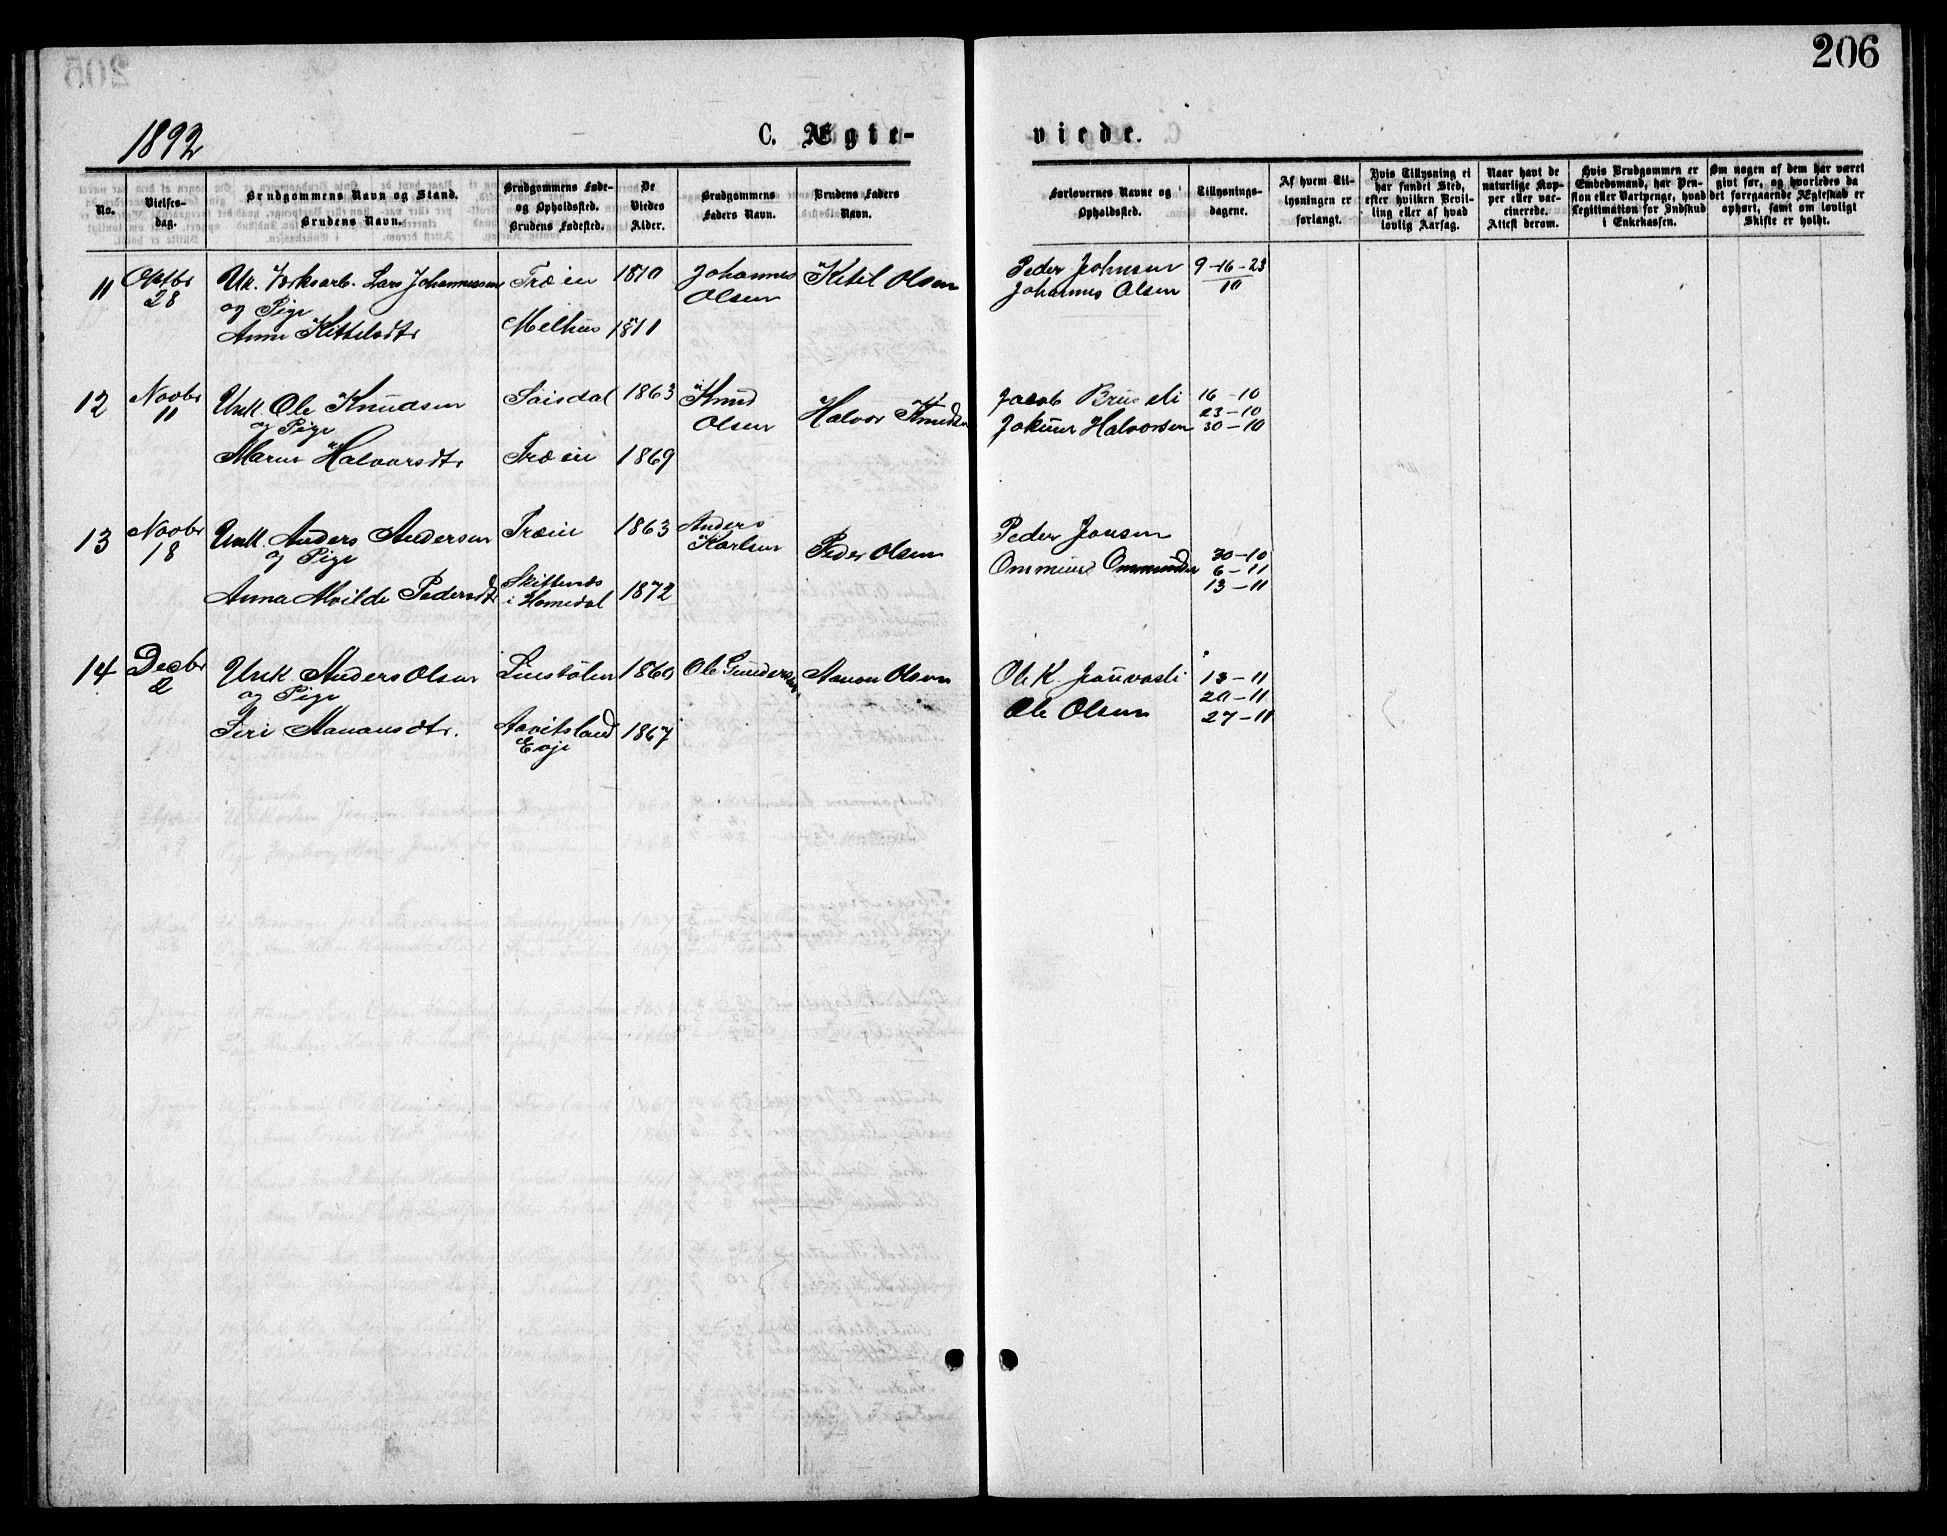 206
1892
C. Ægte-
viede.
No.
Vielses-
dag.
Brudgommens Navn og Stand.
Brudens Navn.
Brudgommens Føde-
og Opholdssted.
Brudens Fødested.
De
Viedes
Alder.
Brudgommens
Faders Navn.
Brudens Faders
Navn.
Forlovernes Navne og
Opholdssted.
Tillysnings-
dagene.
Af hvem Til-
lysningen er
forlangt.
Hvis Tillysning ei
har fundet Sted,
efter hvilken Bevil-
ling eller af hvad
lovlig Aarsag.
Naar havt de
naturlige Kop-
per eller vac-
cinerede.
Attest derom.
Hvis Brudgommen er
Embedsmand, har Pen-
sion eller Vartpenge, hvad
Legitimation for Indskud
i Enkekassen.
Om nogen af dem har været
givt før, og hvorledes da
det foregaaende Ægteskab er
ophørt, samt om lovligt
Skifte er holdt.
11 Oktbr 28
Uk. Lars Johannessen
og Pige
Anne Kittelsdtr
Træin 1870
Melhus 1871
Johannes
Olsen
Kitil Olsen
Peder Johnsen
Johannes Olsen
9-16-23
10
12 Novbr 11
Unk. Ole Knudsen
og Pige
Maren Halvorsdtr
1863
Træin 1869
Knud
Olsen
Halvor Knudsen
Jacob
Halvorsen
16-10
23-10
30-10
13 Novbr 18
Unk. Anders Andersen
og Pige
Anna Alvilde Pedersdt
Træin 1863
i Homedal 1872
Anders
Karlsen
Peder Olsen
Peder Jonsen
30-10
6-11
13-11
14 Decbr 2
Unk Anders Olsen
og Pige
Siri Aanonsdtr.
1860
Aavitsland
Evje
1867
Ole Gundersen
Aanon Olsen
Ole K.
Ole Olsen
13-11
20-11
27-11